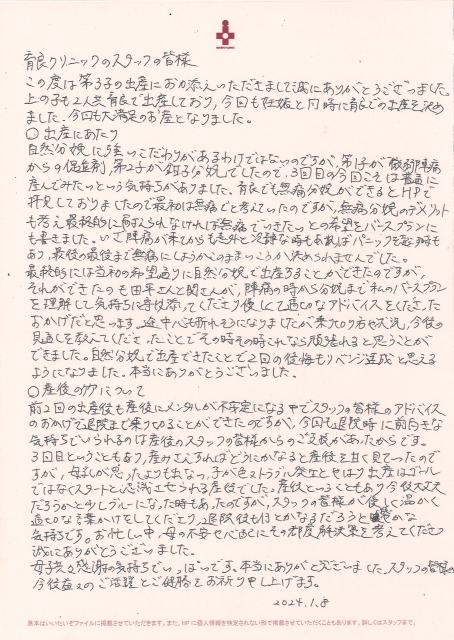 育良クリニックのスタッフの皆様
この度は第3子の出産にお力添えいただきまして誠にありがとうございました。
上の子も2人共育良で出産しており、今回も妊娠と同時に育良での出産を決め
ました。今回も大満足のお産となりました。
○出産にあたり
自然分娩に強いこだわりがあるわけではないのですが、第1子が微弱陣痛
からの促進剤、第2子が鉗子分娩でしたので、3回目の今回こそは普通に
産んでみたいという気持ちがありました。育良でも無痛分娩ができるとHPで
拝見しておりましたので最初は無痛でと考えていたのですが、無痛分娩のデメリット
も考え最終的に耐えられなければ無痛でいきたいとの希望をバースプランに
も書きました。いざ陣痛が来てからも意外と冷静な時もあればパニックな時も
あり、最後の最後まで無痛にしようかこのままいこうか決められませんでした。
最終的には当初の希望通りに自然分娩で出産することができたのですが、
それができたのも田平さんと関さんが、陣痛の時から分娩まで私のバースプラン
を理解して気持ちに寄り添ってくださり優しくて適切なアドバイスをくださった
おかげだと思います。途中心も折れそうになりましたが乗り切り方や状況、今後の
見通しを教えてくださったことでその時その時これなら頑張れると思うことが
できました。自然分娩で出産できたことで2回の後悔もリベンジ達成と思える
ようになりました。本当にありがとうございました。
○産後のケアについて
前2回の出産後も産後にメンタルが不安定になる中でスタッフの皆様のアドバイス
のおかげで退院まで乗りきることができたのですが、今回も退院時に前向きな
気持ちでいられるのは産後のスタッフの皆様からのご支援があったからです。
3回目ということもあり、産みさえすればどうにかなると産後を甘く見てたった
ですが、母乳が思ったより出なっ、子が色々トラブル発生とやはり出産はゴール
ではなくスタートと認識させられる産後でした。産後ということもあり今後大丈夫
だろうかと少しブルーになった時もあったのですが、スタッフの皆様が優しく温かく
適切な言葉かけをしてくださり、退院後も何とかなるだろうと穏やかな
気持ちです。お忙しい中、母の不安や心配にその都度解決策を考えてくださり
誠にありがとうございました。
母子共々感謝の気持ちでいっぱいです。本当にありがとうございました。スタッフの皆様の
今後益々のご活躍とご健勝をお祈り申し上げます。
2024.1.8
原本はいいたいぞファイルに掲載させていただきます。また、HPに個人情報を特定されない形で掲載させていただくこともあります。詳しくはスタッフまで。